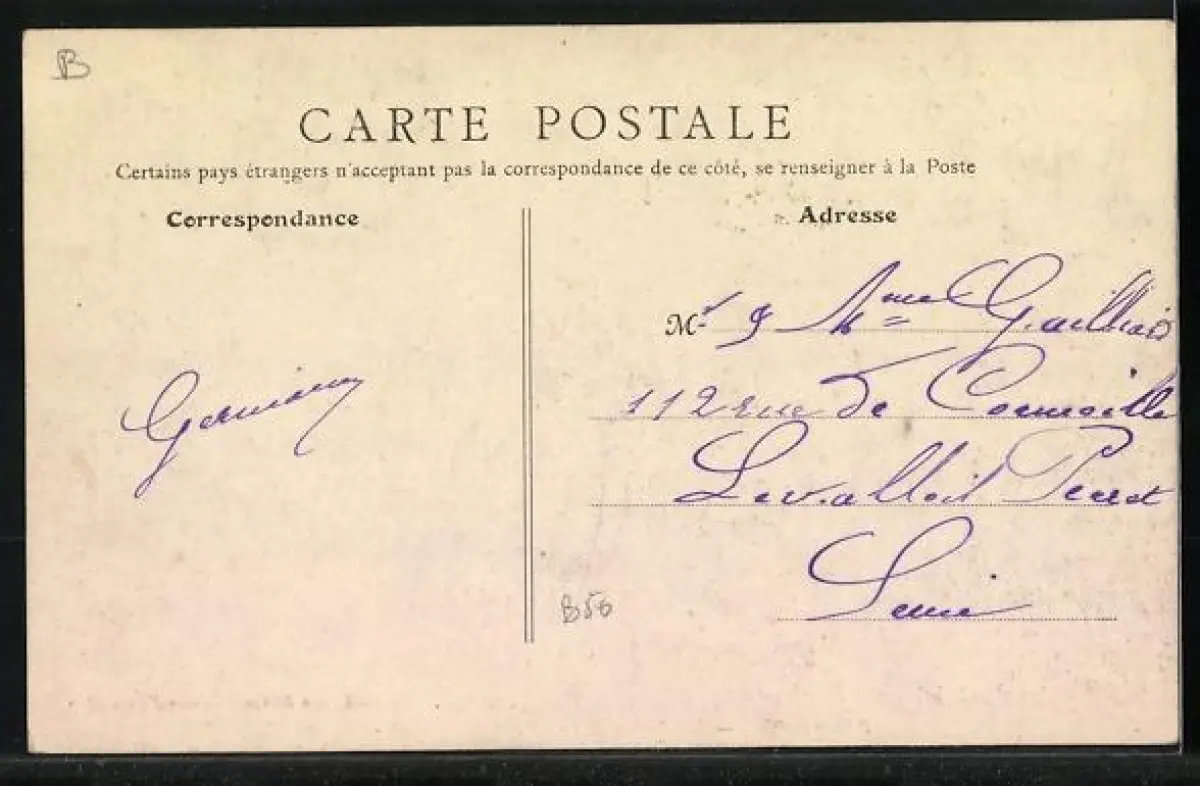 B
CARTE POSTALE
Certains pays étrangers n'acceptant pas la correspondance de ce côté, se renseigner à la Poste
Correspondance
Adresse
Mr & Mme
112 rue de Cormeille
Levallois Perret
Seine
B50